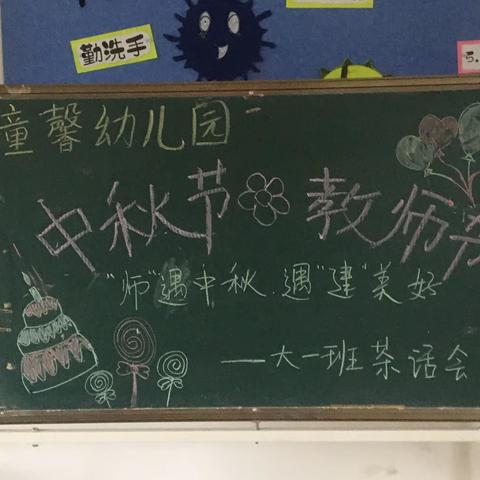 勤洗手
5.
童馨幼儿园
中秋节 教师节
"师"遇中秋.遇"建"美好
—大一班茶话会